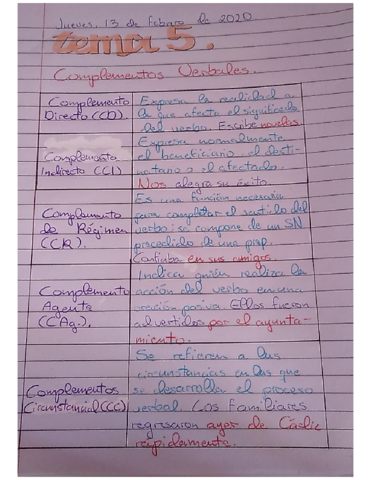 Jueves, 13 de febrero de 2020
tema 5.
Complementos Verbales.
Complemento
Directo (CD).
Expresa la realidad a
la que afecta el significado
del verbo. Escribe novelas.
Complemento
Indirecto (CI)
Expresa normalmente
el beneficiario, el desti-
natario o el afectado.
Nos alegra su éxito.
Complemento
de Régimen
(CR).
Es una función necesaria
para completar el sentido del
verbo: se compone de un SN
precedido de una prep.
Confiaba en sus amigos.
Complemento
Agente
(CAg.).
Indica quién realiza la
acción del verbo en una
oración pasiva. Ellos fueron
advertidos por el ayunta-
miento.
Complementos
Circunstancial (CC)
Se refieren a las
circunstancias en las que
se desarrolla el proceso
verbal. Los familiares
regresaron ayer de Cádiz
rápidamente.